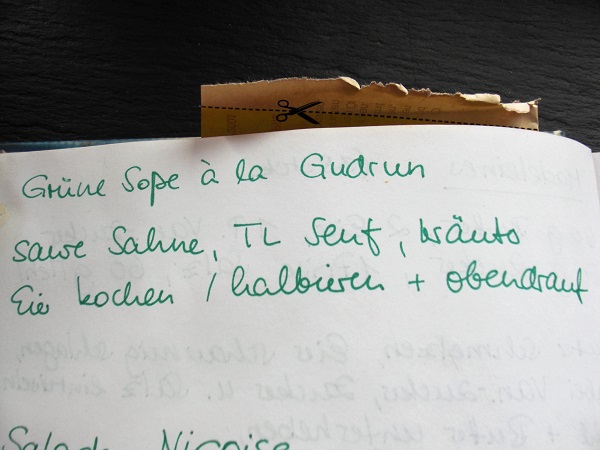 Grüne Soße à la Gudrun
saure Sahne, TL Senf, Kräuter
Eier kochen / halbieren + obendrauf
Salade Niçoise